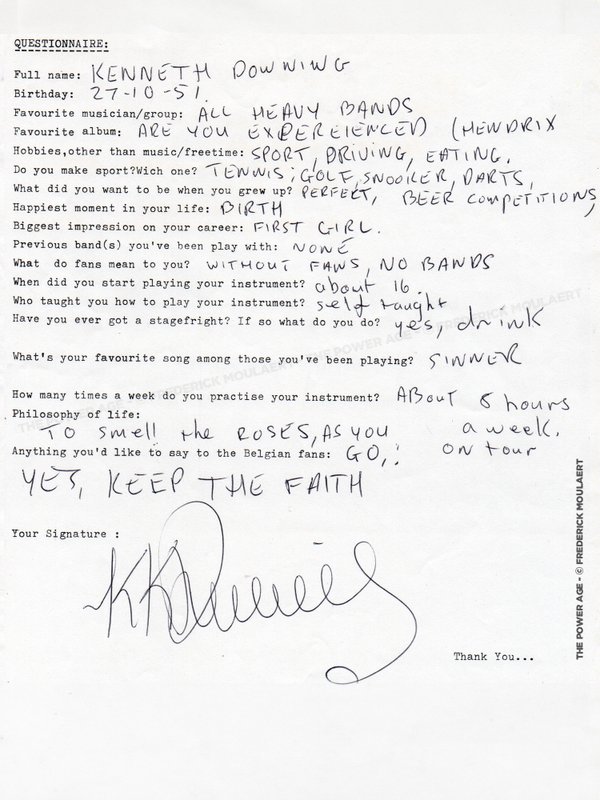 QUESTIONNAIRE:
Full name: KENNETH DOWNING
Birthday: 27-10-51.
Favourite musician/group: ALL HEAVY BANDS
Favourite album: ARE YOU EXPEREIENCED (HENDRIX
Hobbies,other than music/freetime: SPORT, DRIVING, EATING.
Do you make sport?Wich one? TENNIS, GOLF, SNOOKER, DARTS,
What did you want to be when you grew up? PERFECT, BEER COMPETITIONS,
Happiest moment in your life: BIRTH
Biggest impression on your career: FIRST GIRL.
Previous band(s) you've been play with: NONE
What do fans mean to you? WITHOUT FANS, NO BANDS
When did you start playing your instrument? about 16.
Who taught you how to play your instrument? self taught
Have you ever got a stagefright? If so what do you do? yes, drink
What's your favourite song among those you've been playing? SINNER
How many times a week do you practise your instrument? ABOUT 8 hours
a week.
on tour
Philosophy of life:
TO smell the ROSES, AS YOU
GO,.
Anything you'd like to say to the Belgian fans:
YES, KEEP THE FAITH
Your Signature :
KK Downing
Thank You...
THE POWER AGE - © FREDERICK MOULAERT
THE POWER AGE - © FREDERICK MOULAERT